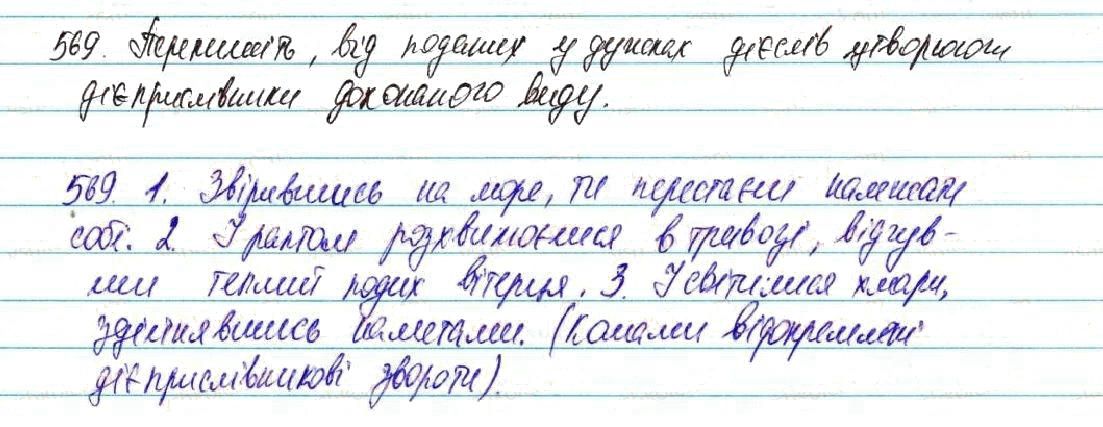 569. Перепишіть, від поданих у дужках дієслів утворюючи
дієприслівники доконаного виду.
569. 1. Звірившись на море, ти перестаєш належати
собі. 2. І раптом розхвилюєшся в тривозі, відчув-
ши теплий подих вітерця. 3. І світилися хмари,
здійнявшись наметами. (Комами відокремлені
дієприслівникові звороти).